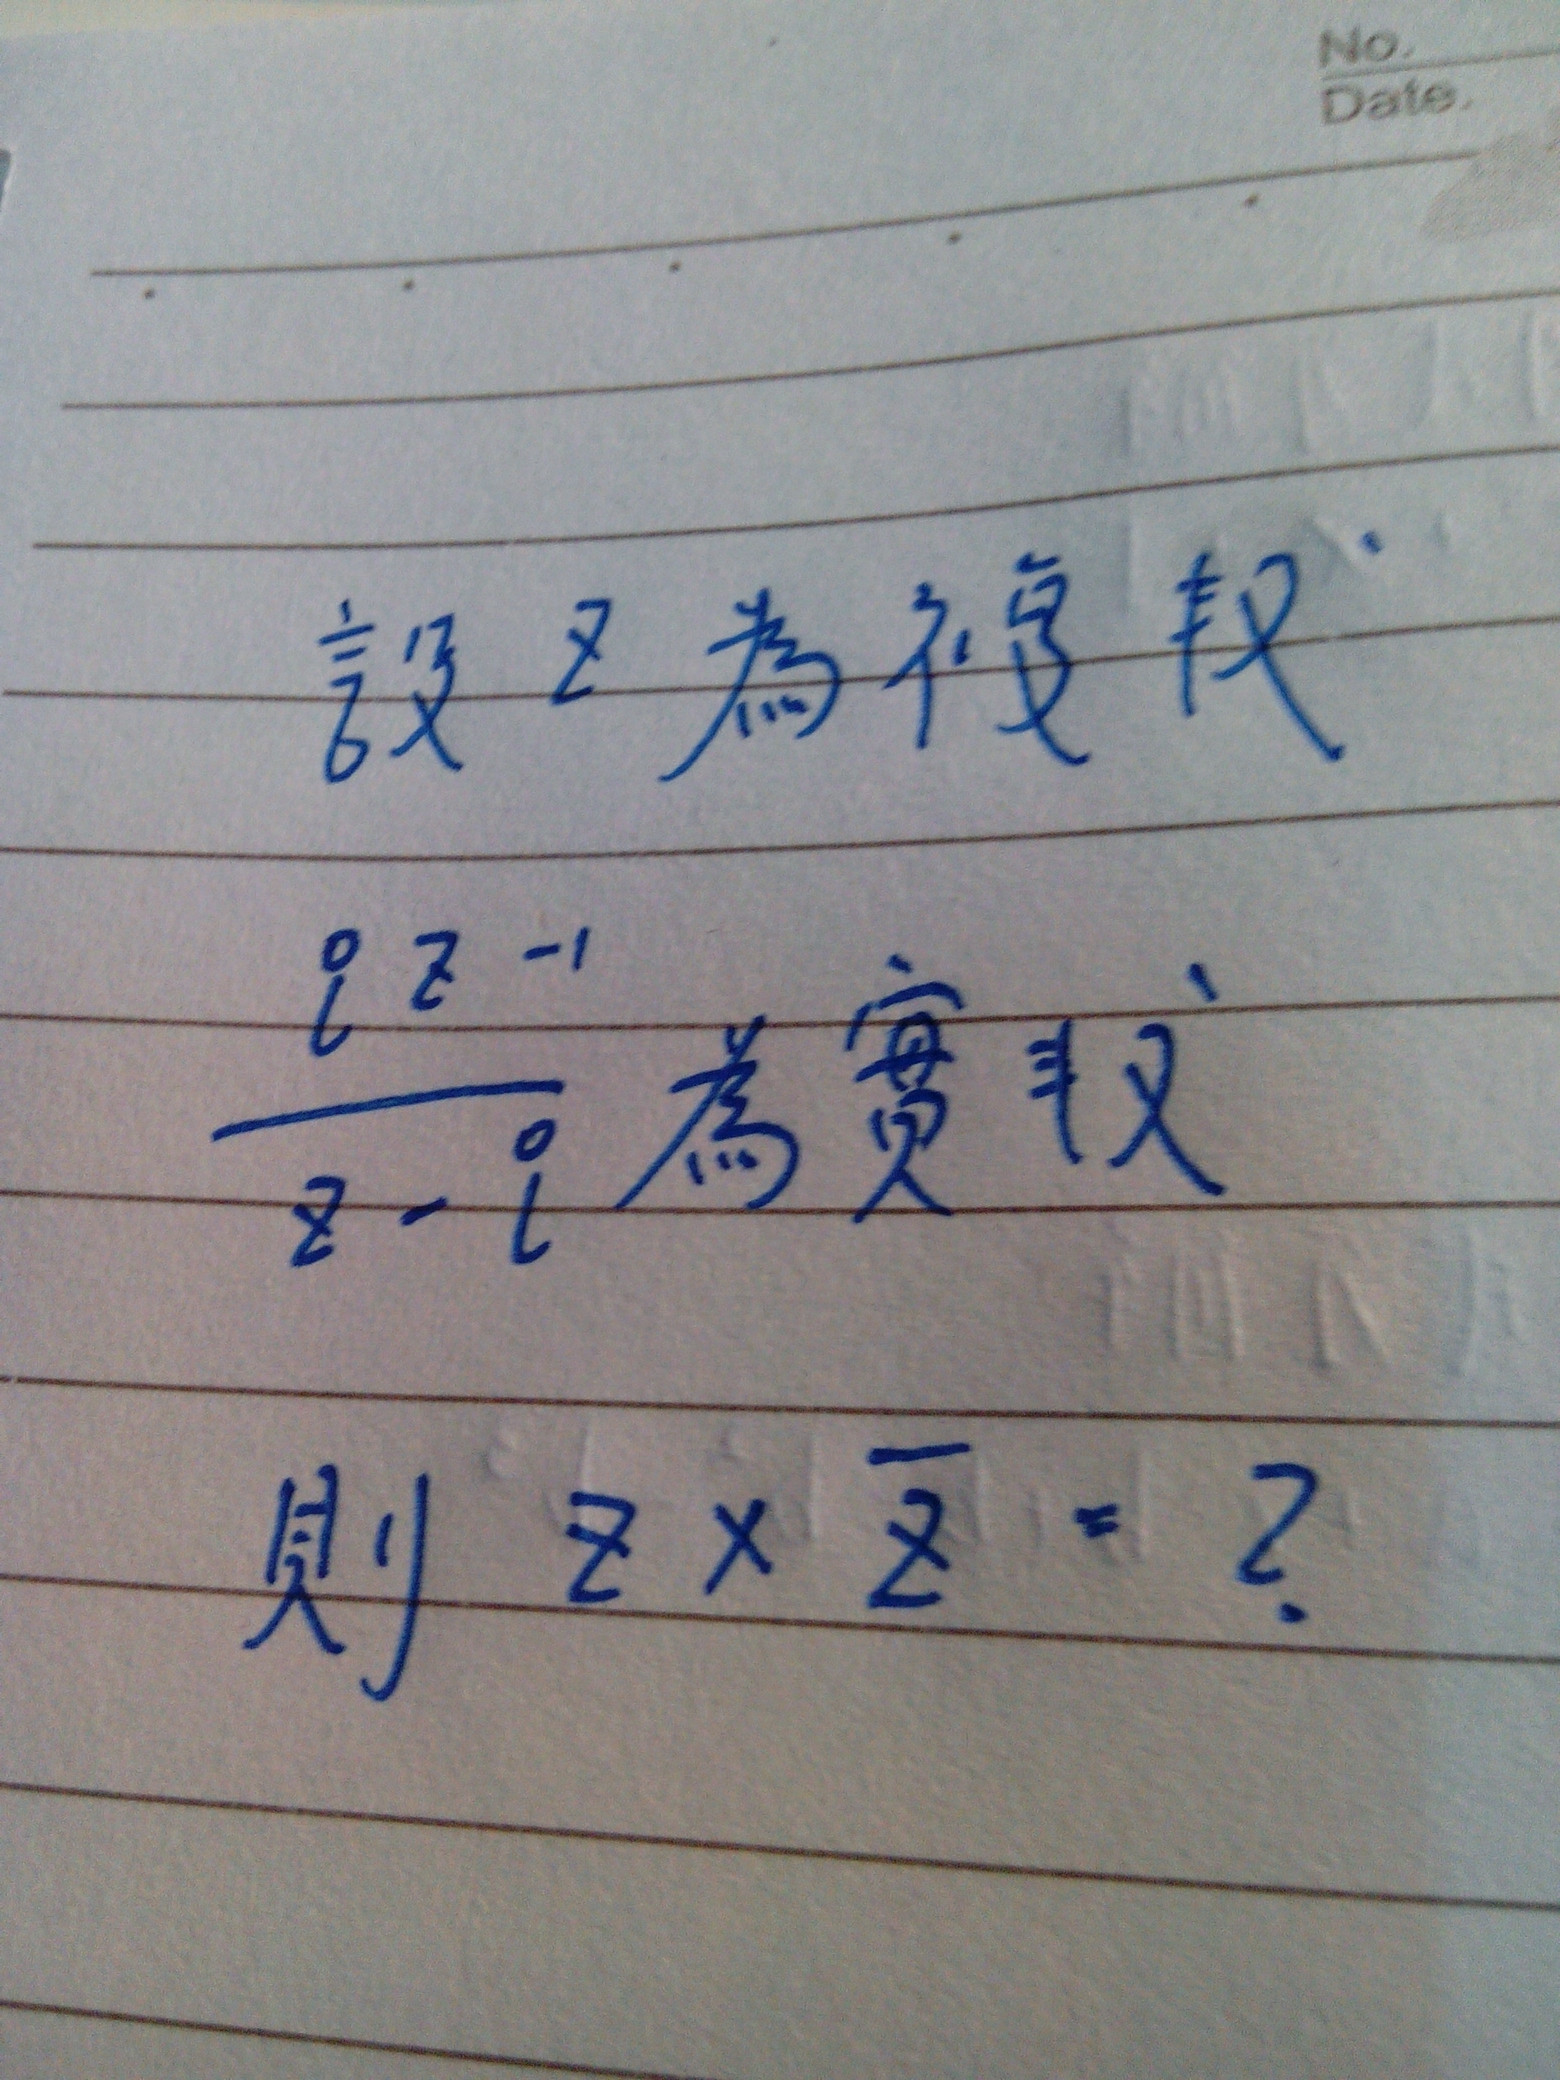 No.
Date.
設 z 為複數
iz-1
z-i 為實數
則 z x z̄ = ?